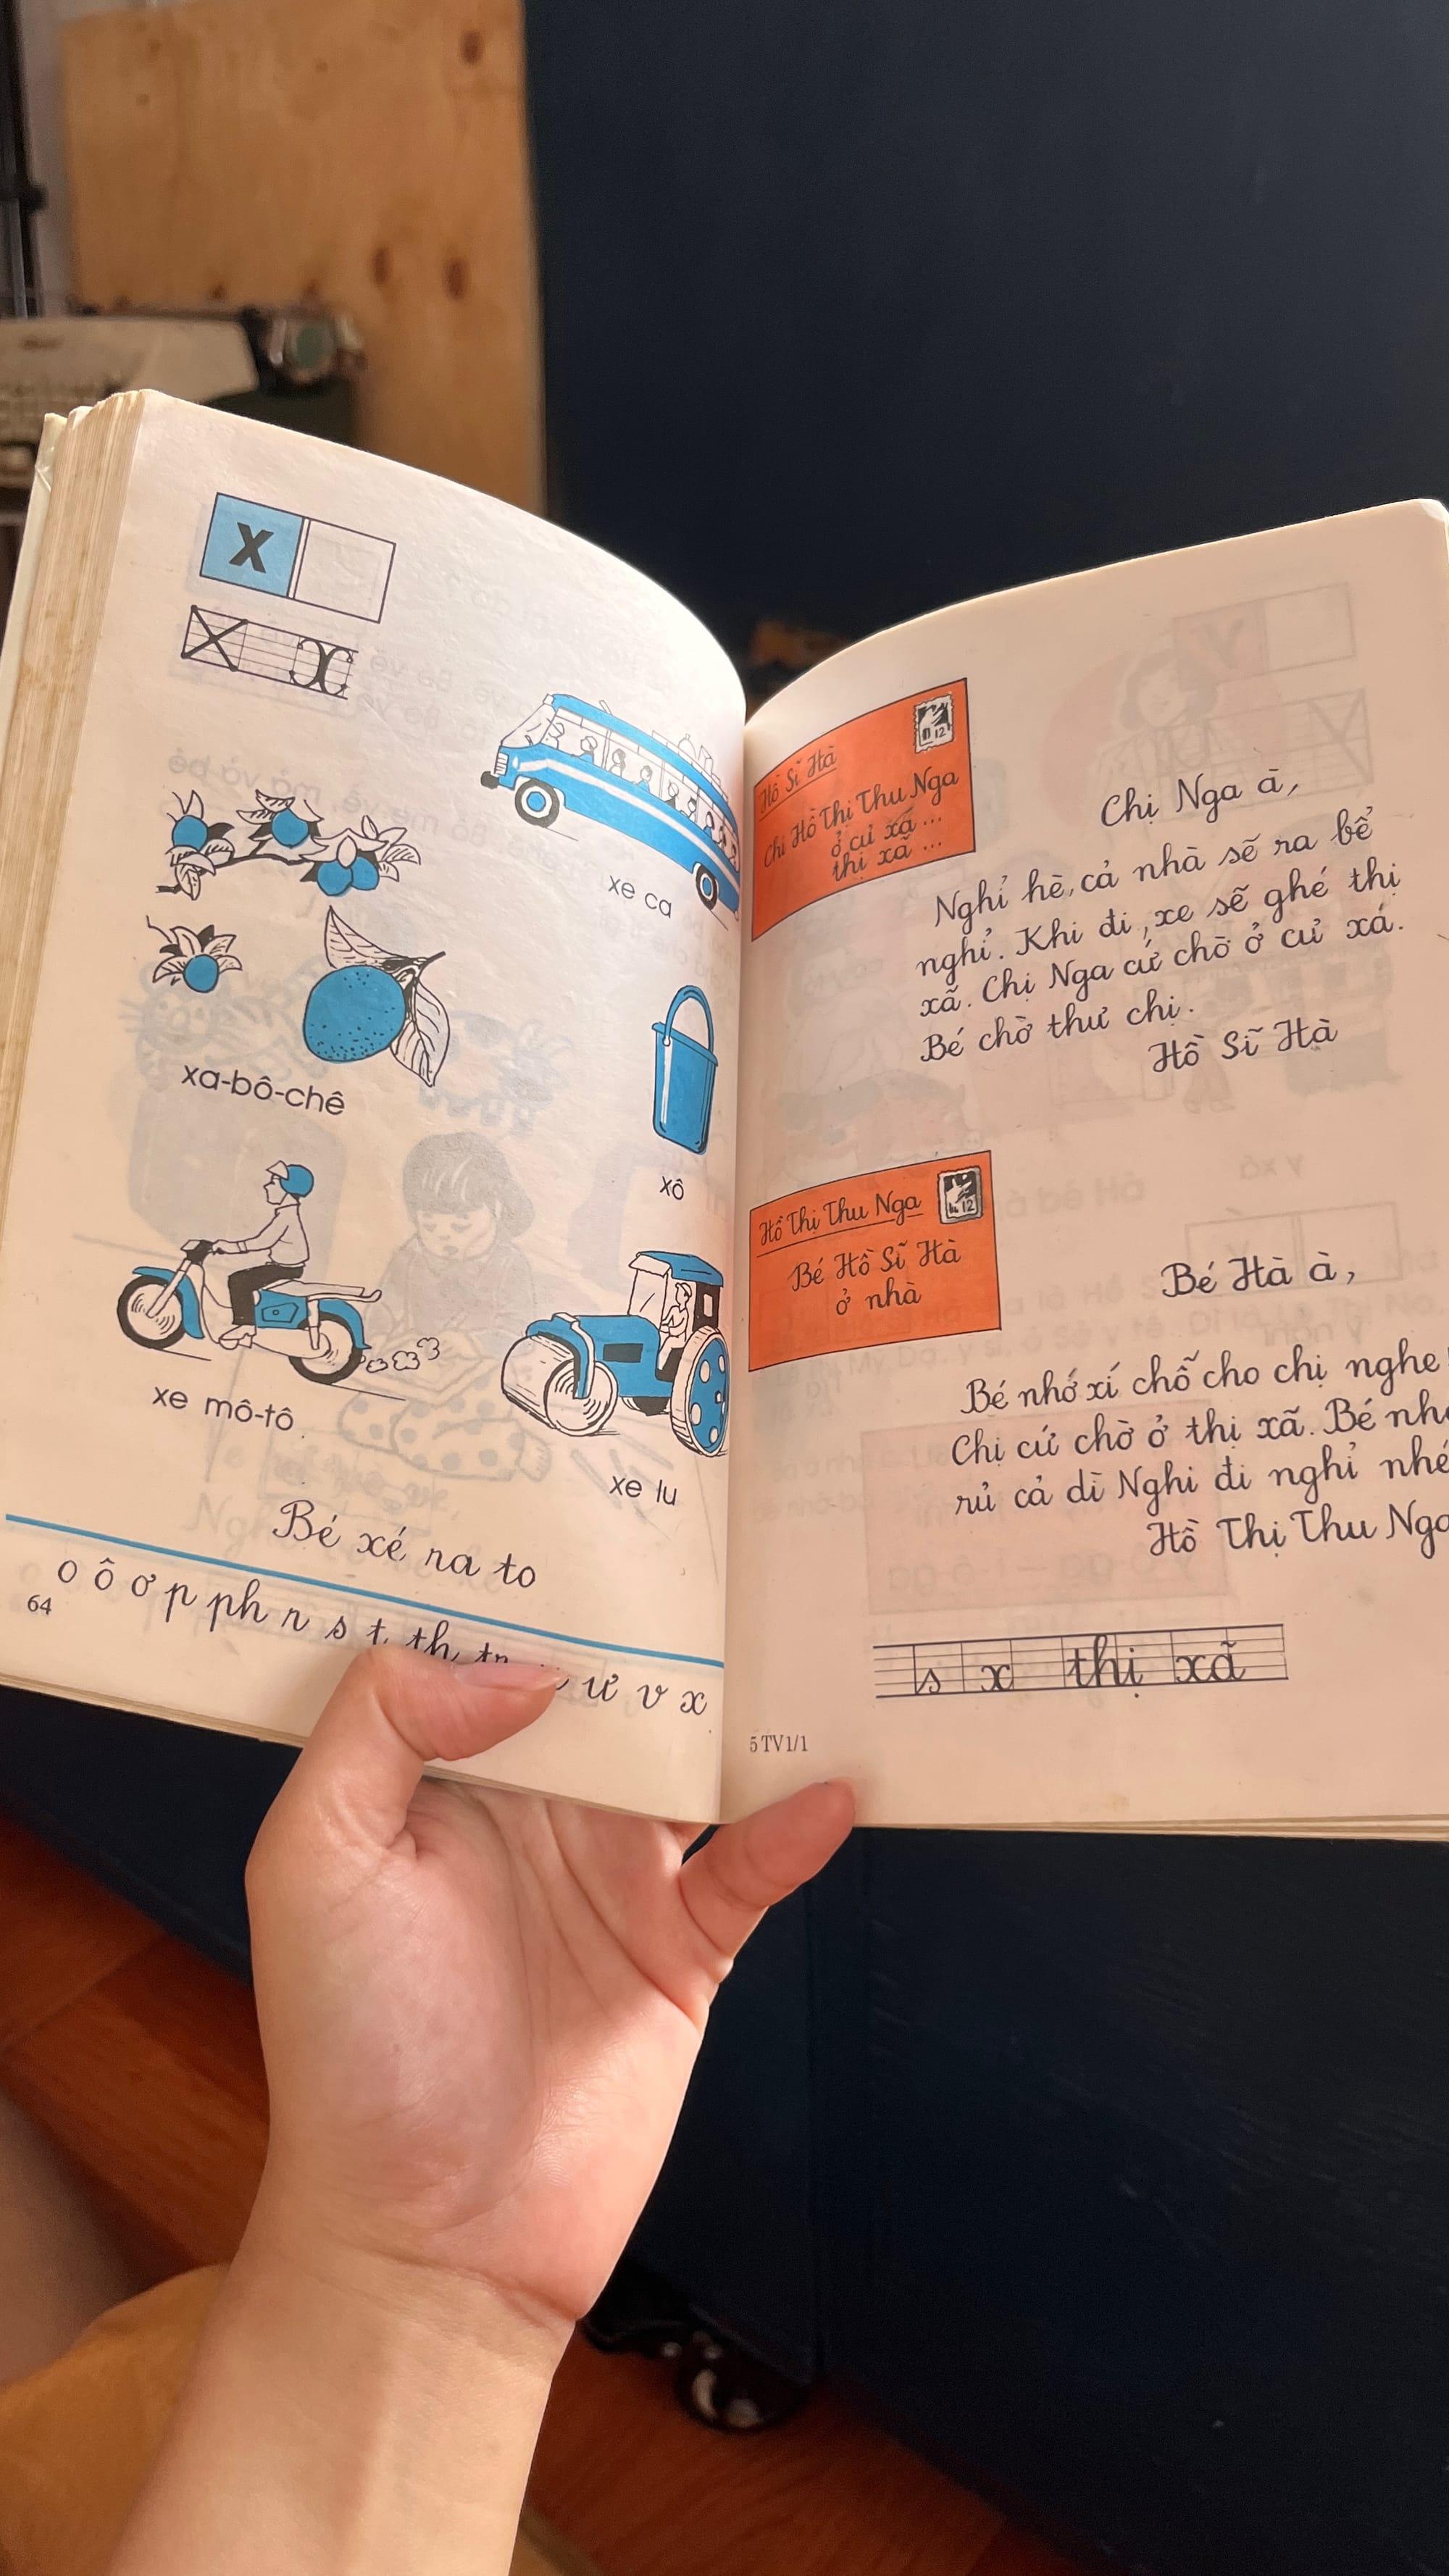 x
X x
xe ca
xa-bô-chê
xô
xe mô-tô
xe lu
Bé xé ra to
o ô ơ p ph r s t th tr ư v x
64
Hồ Sĩ Hà
Chị Hồ Thị Thu Nga
ở cư xá ...
thị xã ...
12
Chị Nga à,
Nghỉ hè, cả nhà sẽ ra bể
nghỉ. Khi đi, xe sẽ ghé thị
xã. Chị Nga cứ chờ ở cư xá.
Bé chờ thư chị.
Hồ Sĩ Hà
Hồ Thị Thu Nga
Bé Hồ Sĩ Hà
ở nhà
12
Bé Hà à,
Bé nhớ xí chỗ cho chị nghe
Chị cứ chờ ở thị xã. Bé
rủ cả dì Nghi đi nghỉ nhé
Hồ Thị Thu Nga
s x thị xã
5 TV1/1